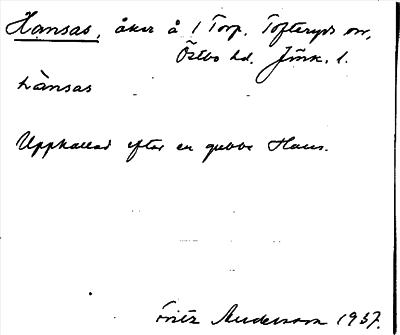 Hansas, åker å 1 Torp. Tofteryds sn,
Östbo hd. Jönk. l.
hànsas
Uppkallad efter en gubbe Hans.
Fritz Anderson 1937.